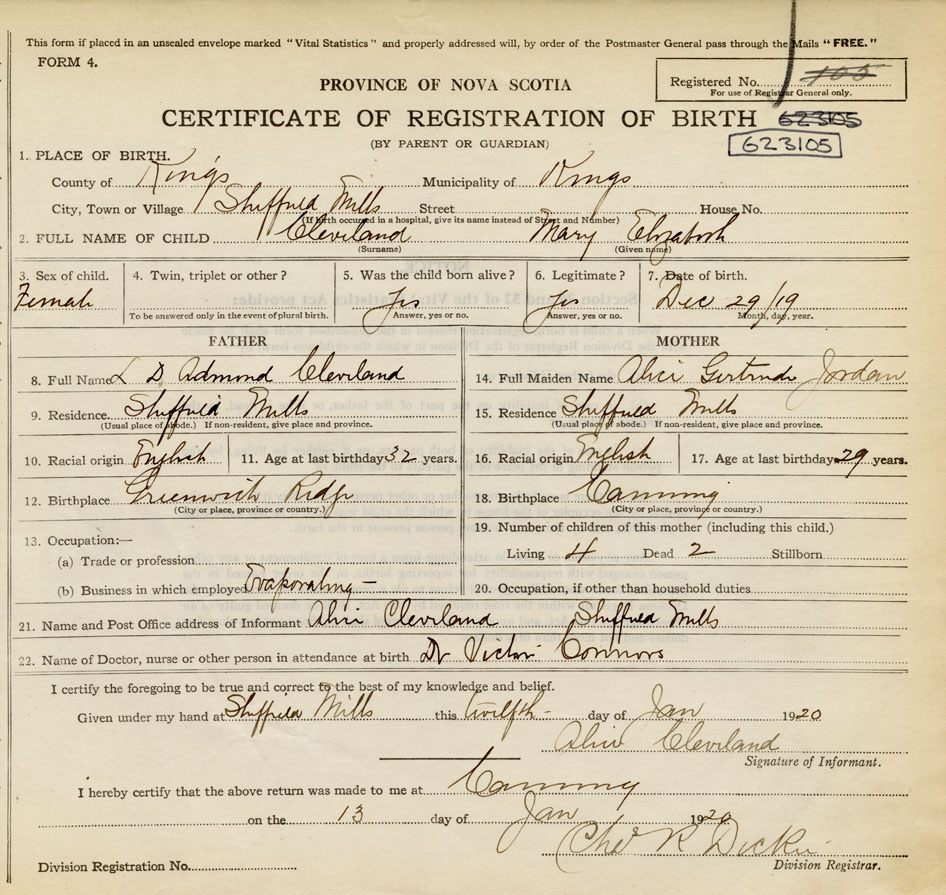 This form if placed in an unsealed envelope marked "Vital Statistics" and properly addressed will, by order of the Postmaster General pass through the Mails "FREE."
FORM 4.
PROVINCE OF NOVA SCOTIA
Registered No. 105
For use of Registrar General only.
CERTIFICATE OF REGISTRATION OF BIRTH 623105
(BY PARENT OR GUARDIAN) 623105
1. PLACE OF BIRTH.
County of Kings Municipality of Kings
City, Town or Village Sheffield Mills Street House No.
(If birth occurred in a hospital, give its name instead of Street and Number)
2. FULL NAME OF CHILD Cleveland Mary Elizabeth
(Surname) (Given name)
3. Sex of child. 4. Twin, triplet or other? 5. Was the child born alive? 6. Legitimate? 7. Date of birth.
Female Yes Yes Dec 29/19
To be answered only in the event of plural birth. Answer, yes or no. Answer, yes or no. Month, day, year.
FATHER MOTHER
8. Full Name L D Admond Cleveland 14. Full Maiden Name Alice Gertrude Jordan
9. Residence. Sheffield Mills 15. Residence Sheffield Mills
(Usual place of abode.) If non-resident, give place and province. (Usual place of abode.) If non-resident, give place and province.
10. Racial origin English 11. Age at last birthday 32 years. 16. Racial origin English 17. Age at last birthday 29 years.
12. Birthplace Greenwich Ridge 18. Birthplace Canning
(City or place, province or country.) (City or place, province or country.)
13. Occupation:— 19. Number of children of this mother (including this child.)
(a) Trade or profession Living 4 Dead 2 Stillborn
(b) Business in which employed Evaporating — 20. Occupation, if other than household duties
21. Name and Post Office address of Informant Alice Cleveland Sheffield Mills
22. Name of Doctor, nurse or other person in attendance at birth Dr Victor Connors
I certify the foregoing to be true and correct to the best of my knowledge and belief.
Given under my hand at Sheffield Mills this twelfth - day of Jan 1920
Alice Cleveland
Signature of Informant.
I hereby certify that the above return was made to me at Canning
on the 13 day of Jan 1920
Chas R Dickie
Division Registration No. Division Registrar.